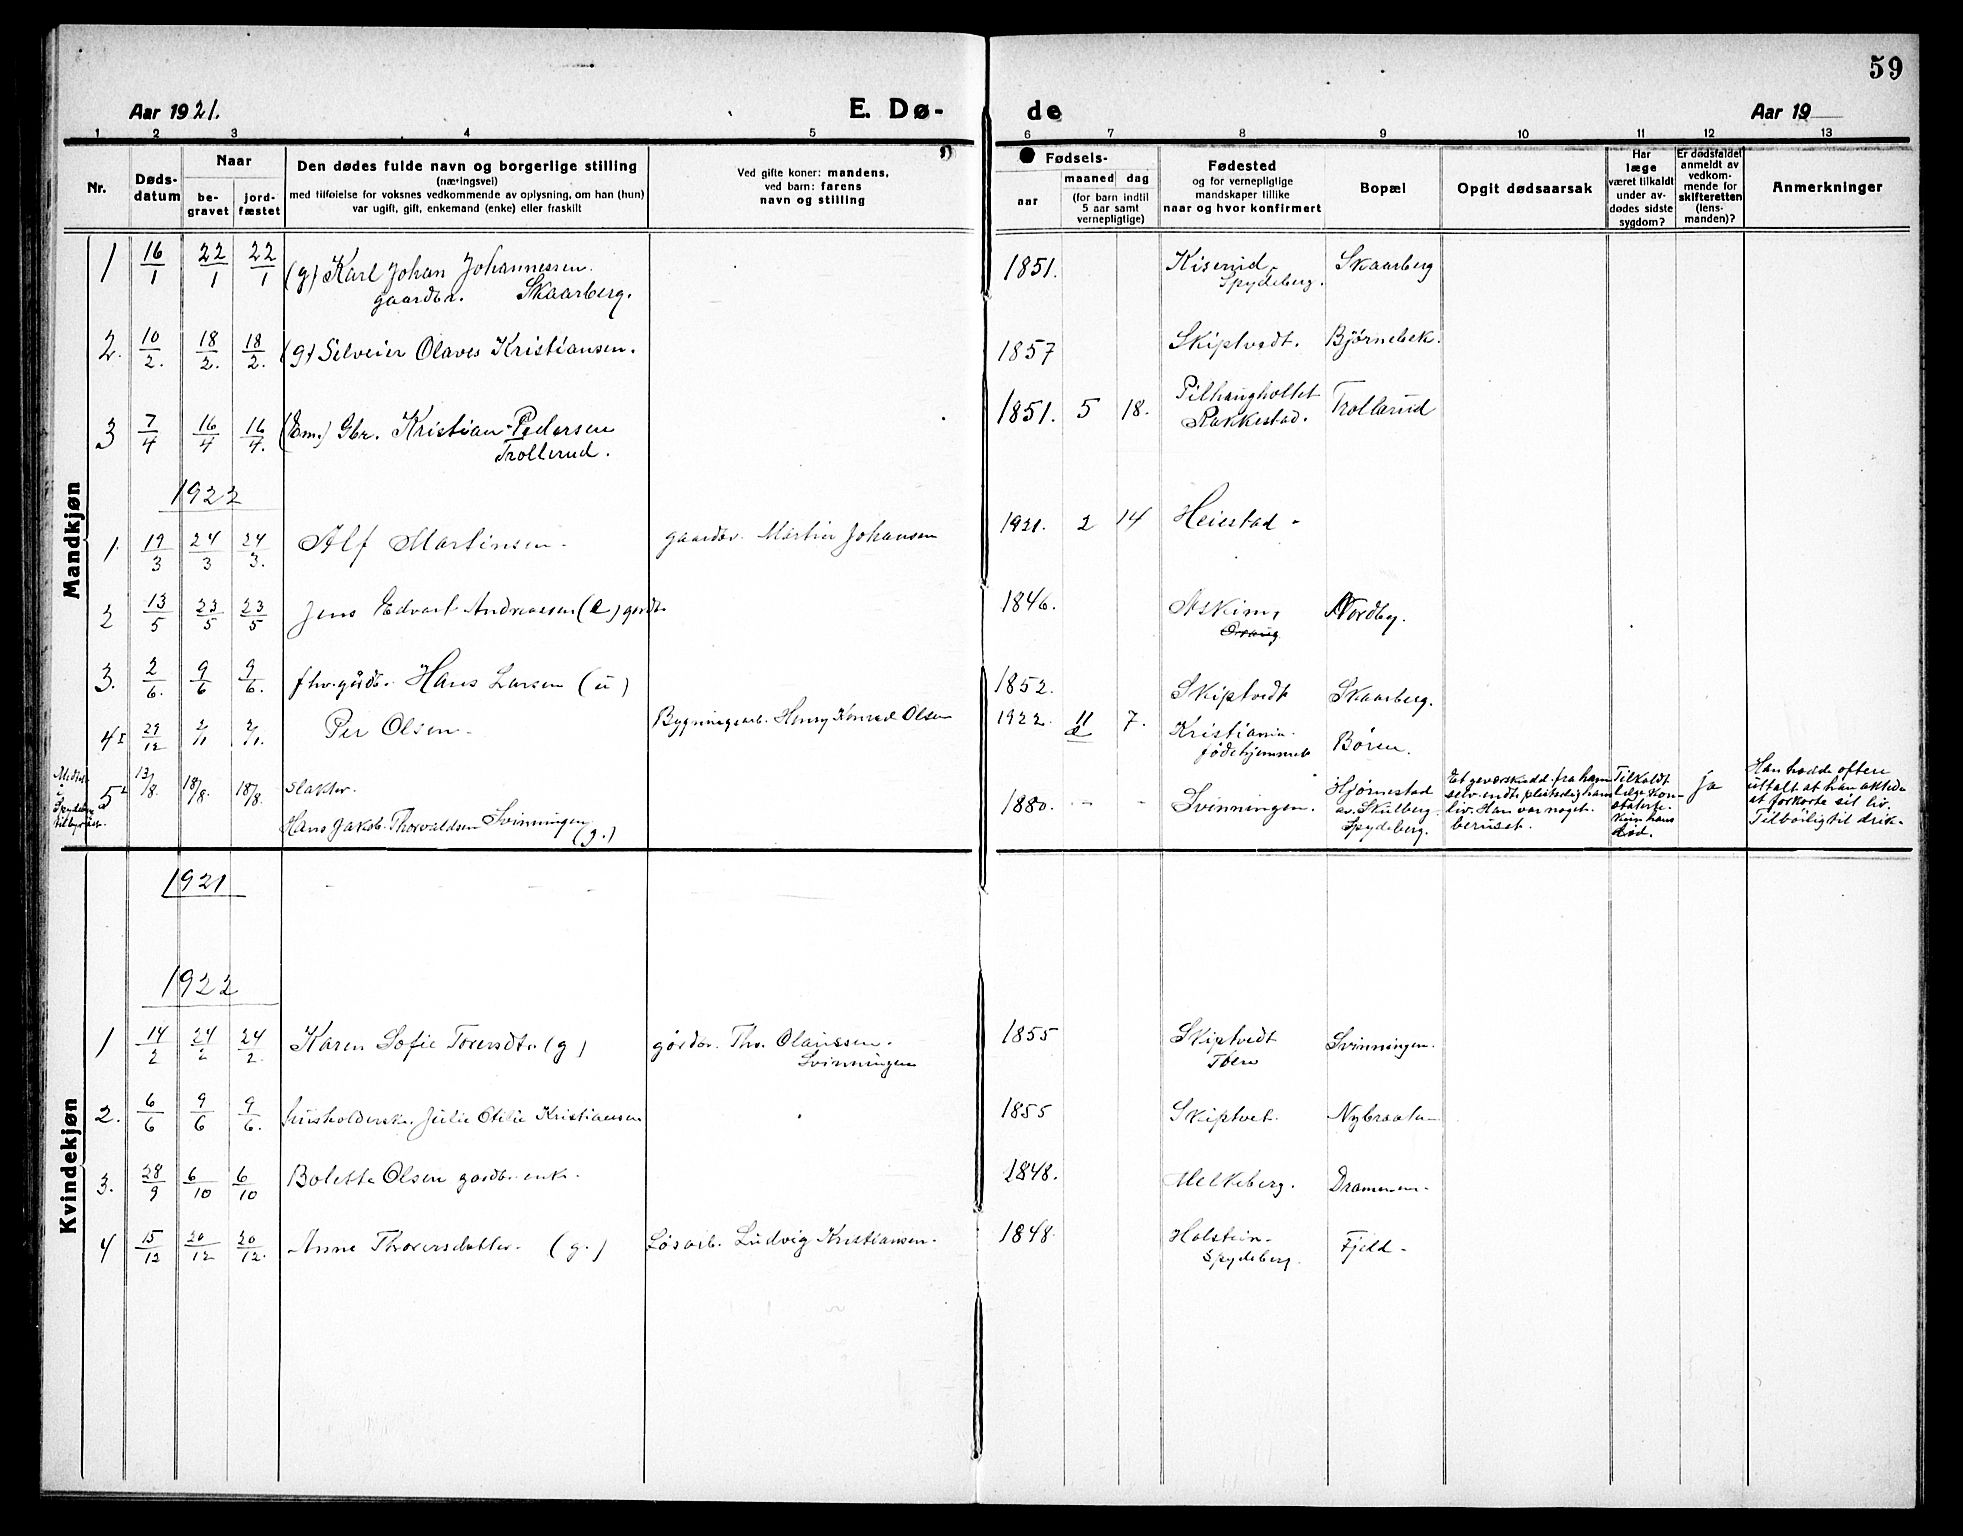 59
Aar 1921.
E. Dø-
de
Aar 19
1 2 3 4 5 6 7 8 9 10 11 12 13
Nr.
Døds-
datum
Naar
be-
gravet
jord-
fæstet
Den dødes fulde navn og borgerlige stilling
(næringsvei)
med tilføielse for voksnes vedkommende av oplysning, om han (hun)
var ugift, gift, enkemand (enke) eller fraskilt
Ved gifte koner: mandens,
ved barn: farens
navn og stilling
Fødsels-
aar
maaned dag
(for barn indtil
5 aar samt
vernepligtige)
Fødested
og for vernepligtige
mandskaper tillike
naar og hvor konfirmert
Bopæl
Opgit dødsaarsak
Har
læge
været tilkaldt
under av-
dødes sidste
sygdom?
Er dødsfaldet
anmeldt av
vedkom-
mende for
skifteretten
(lens-
manden)?
Anmerkninger
Mandkjøn
1 16/1 22/1 22/1 (g) Karl Johan Johannessen. 1851. Kiserud, Skaarberg
gaardbr. Skaarberg. Spydeberg.
2. 10/2. 18/2. 18/2. (g) Selveier Olaves Kristiansen. 1857 Skiptvedt. Bjørnebek.
3 7/4 16/4 16/4. (Em.) Gbr. Kristian Pedersen 1851. 5 18. Pilhaugholtet Trollerud
Trollerud. Rakkestad.
1922
1. 19/3 24/3 24/3. Alf Martinsen. gaardbr. Martin Johansen 1921. 2 14 Heiestad
2 13/5 23/5 23/5 Jens Edvart Andreassen (e) gardbr. 1846. Askim, Nordby.
3. 2/6. 9/6 9/6. fhv. gårdbr. Hans Larsen (u) 1852. Skiptvedt Skaarberg.
4 29/12 2/1 2/1. Per Olsen. Bygningsarb. Henry Konrad Olsen 1922 11 7. Kristiania Børen.
fødehjemmet
5 13/8. 18/8. 18/8. Slakter.
Hans Jakob Thorvaldsen Svinningen (g.) 1880. - - Svinningen. Hjørnestad
av Skulberg
Spydeberg.
Et geværskudd fra ham
selv endte pludselig hans
liv. Han var noget
beruset.
Tilkaldt
læge kon-
staterte
kun hans
død.
ja
Han hadde oftere
uttalt at han aktede
at forkorte sit liv.
Tilbøilig til drik-
Kvindekjøn
1921
1922
1 14/2 24/2 24/2. Karen Sofie Torersdtr. (g) gårdbr. Thv. Olaussen. 1855 Skiptvedt Svinningen.
Svinningen
2. 6/6 9/6 9/6. Husholderske Julie Otilie Kristiansen 1855 Skiptvet. Nybraaten
3. 28/9 6/10 6/10 Bolette Olsen gardbr. enke. 1848. Melkeberg. Drammen.
4 15/12 20/12 20/12. Anne Thorersdatter. (g.) Løsarb. Ludvig Kristiansen. 1848. Holstein Fjeld
Spydeberg.